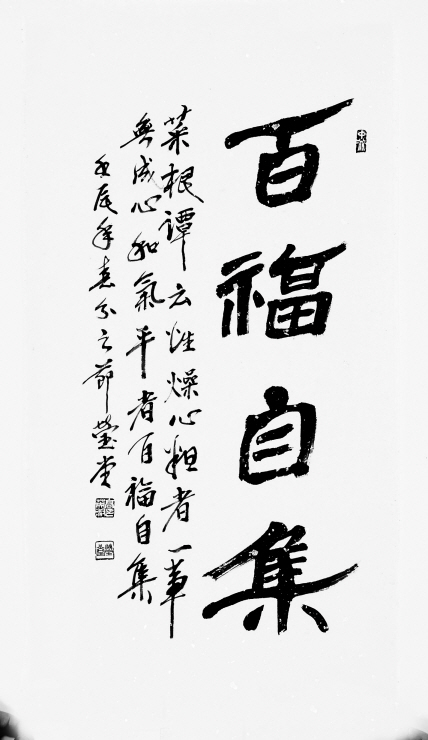 百福自集
菜根谭云性燥心粗者一事
無成心和氣平者百福自集
壬辰年春分之節瑩堂